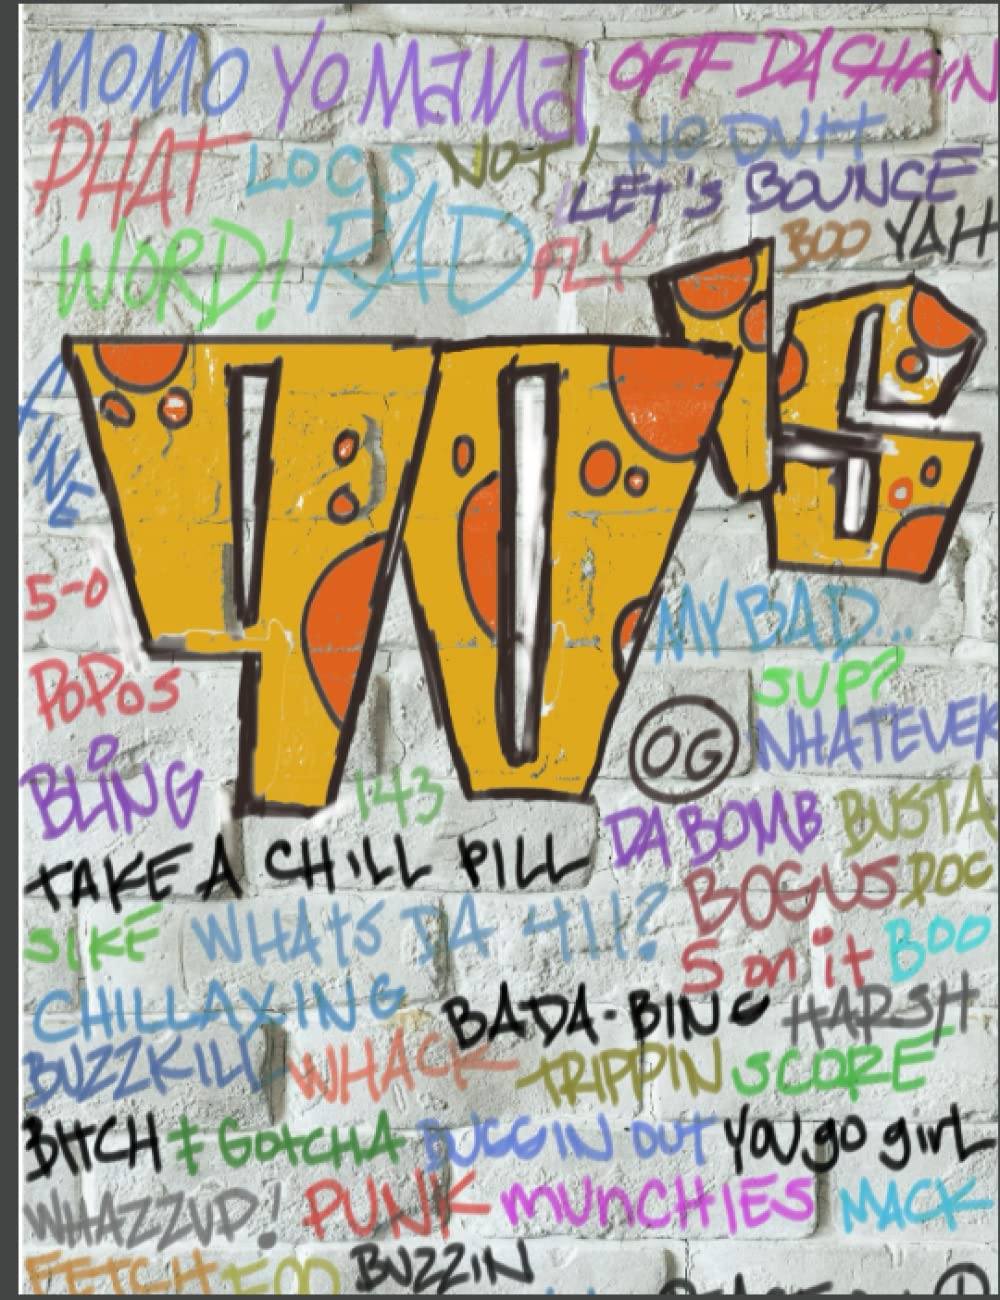 MOMO YO MaMa OFF DA CHAIN
PHAT LOCS NOT! NO DUH
LET'S BOUNCE
WORD! RAD FLY BOO YAH
FINE
90's
5-0
MY BAD...
POPOS
SUP?
OG WHATEVER
BLiNG 143
DA BOMB BUSTA
TAKE A CHiLL PILL
BOGUS DOG
SIKE WHAtS DA 411?
5 on it BOO
CHILLAXING BADA-BING HARSH
BUZZKILL WHACK TRIPPIN SCORE
BITCH GOtCHA BUGGIN OUT YOU go girL
WHAZZUP! PUNK MUnCHIES MACK
FETCH FOO BUZZIN